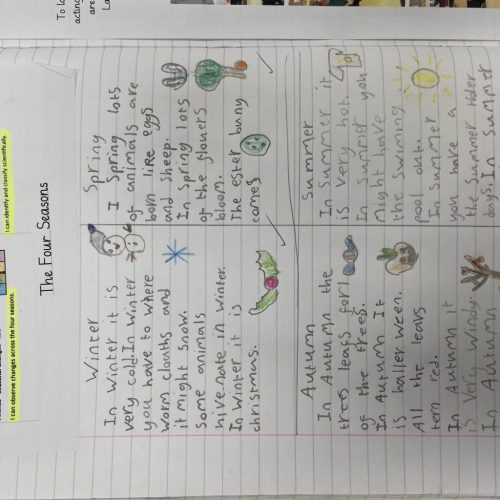 I can identify and classify scientifically.
I can observe changes across the four seasons.
The Four Seasons
Winter
In winter it is
very cold. In winter
you have to where
worm clouths and
it might snow.
some animals
hive-nate in winter.
In winter it is
christmas.
Spring
I Spring lots
of animals are
born like eggs
and sheep.
In spring lots
of the flowers
bloom.
The ester buny
comes
Autumn
In Autumn the
trees leafs forl
of the treep.
In Autumn It
is hallerween.
All the leavs
tern red.
In Autumn it
is very windy.
In Autumn
Summer
In Summer it
is very hot.
In summer you
might have
the swiming
pool out.
In summer
you have a
the Summer
days. In Summer
To la
acting
are
La